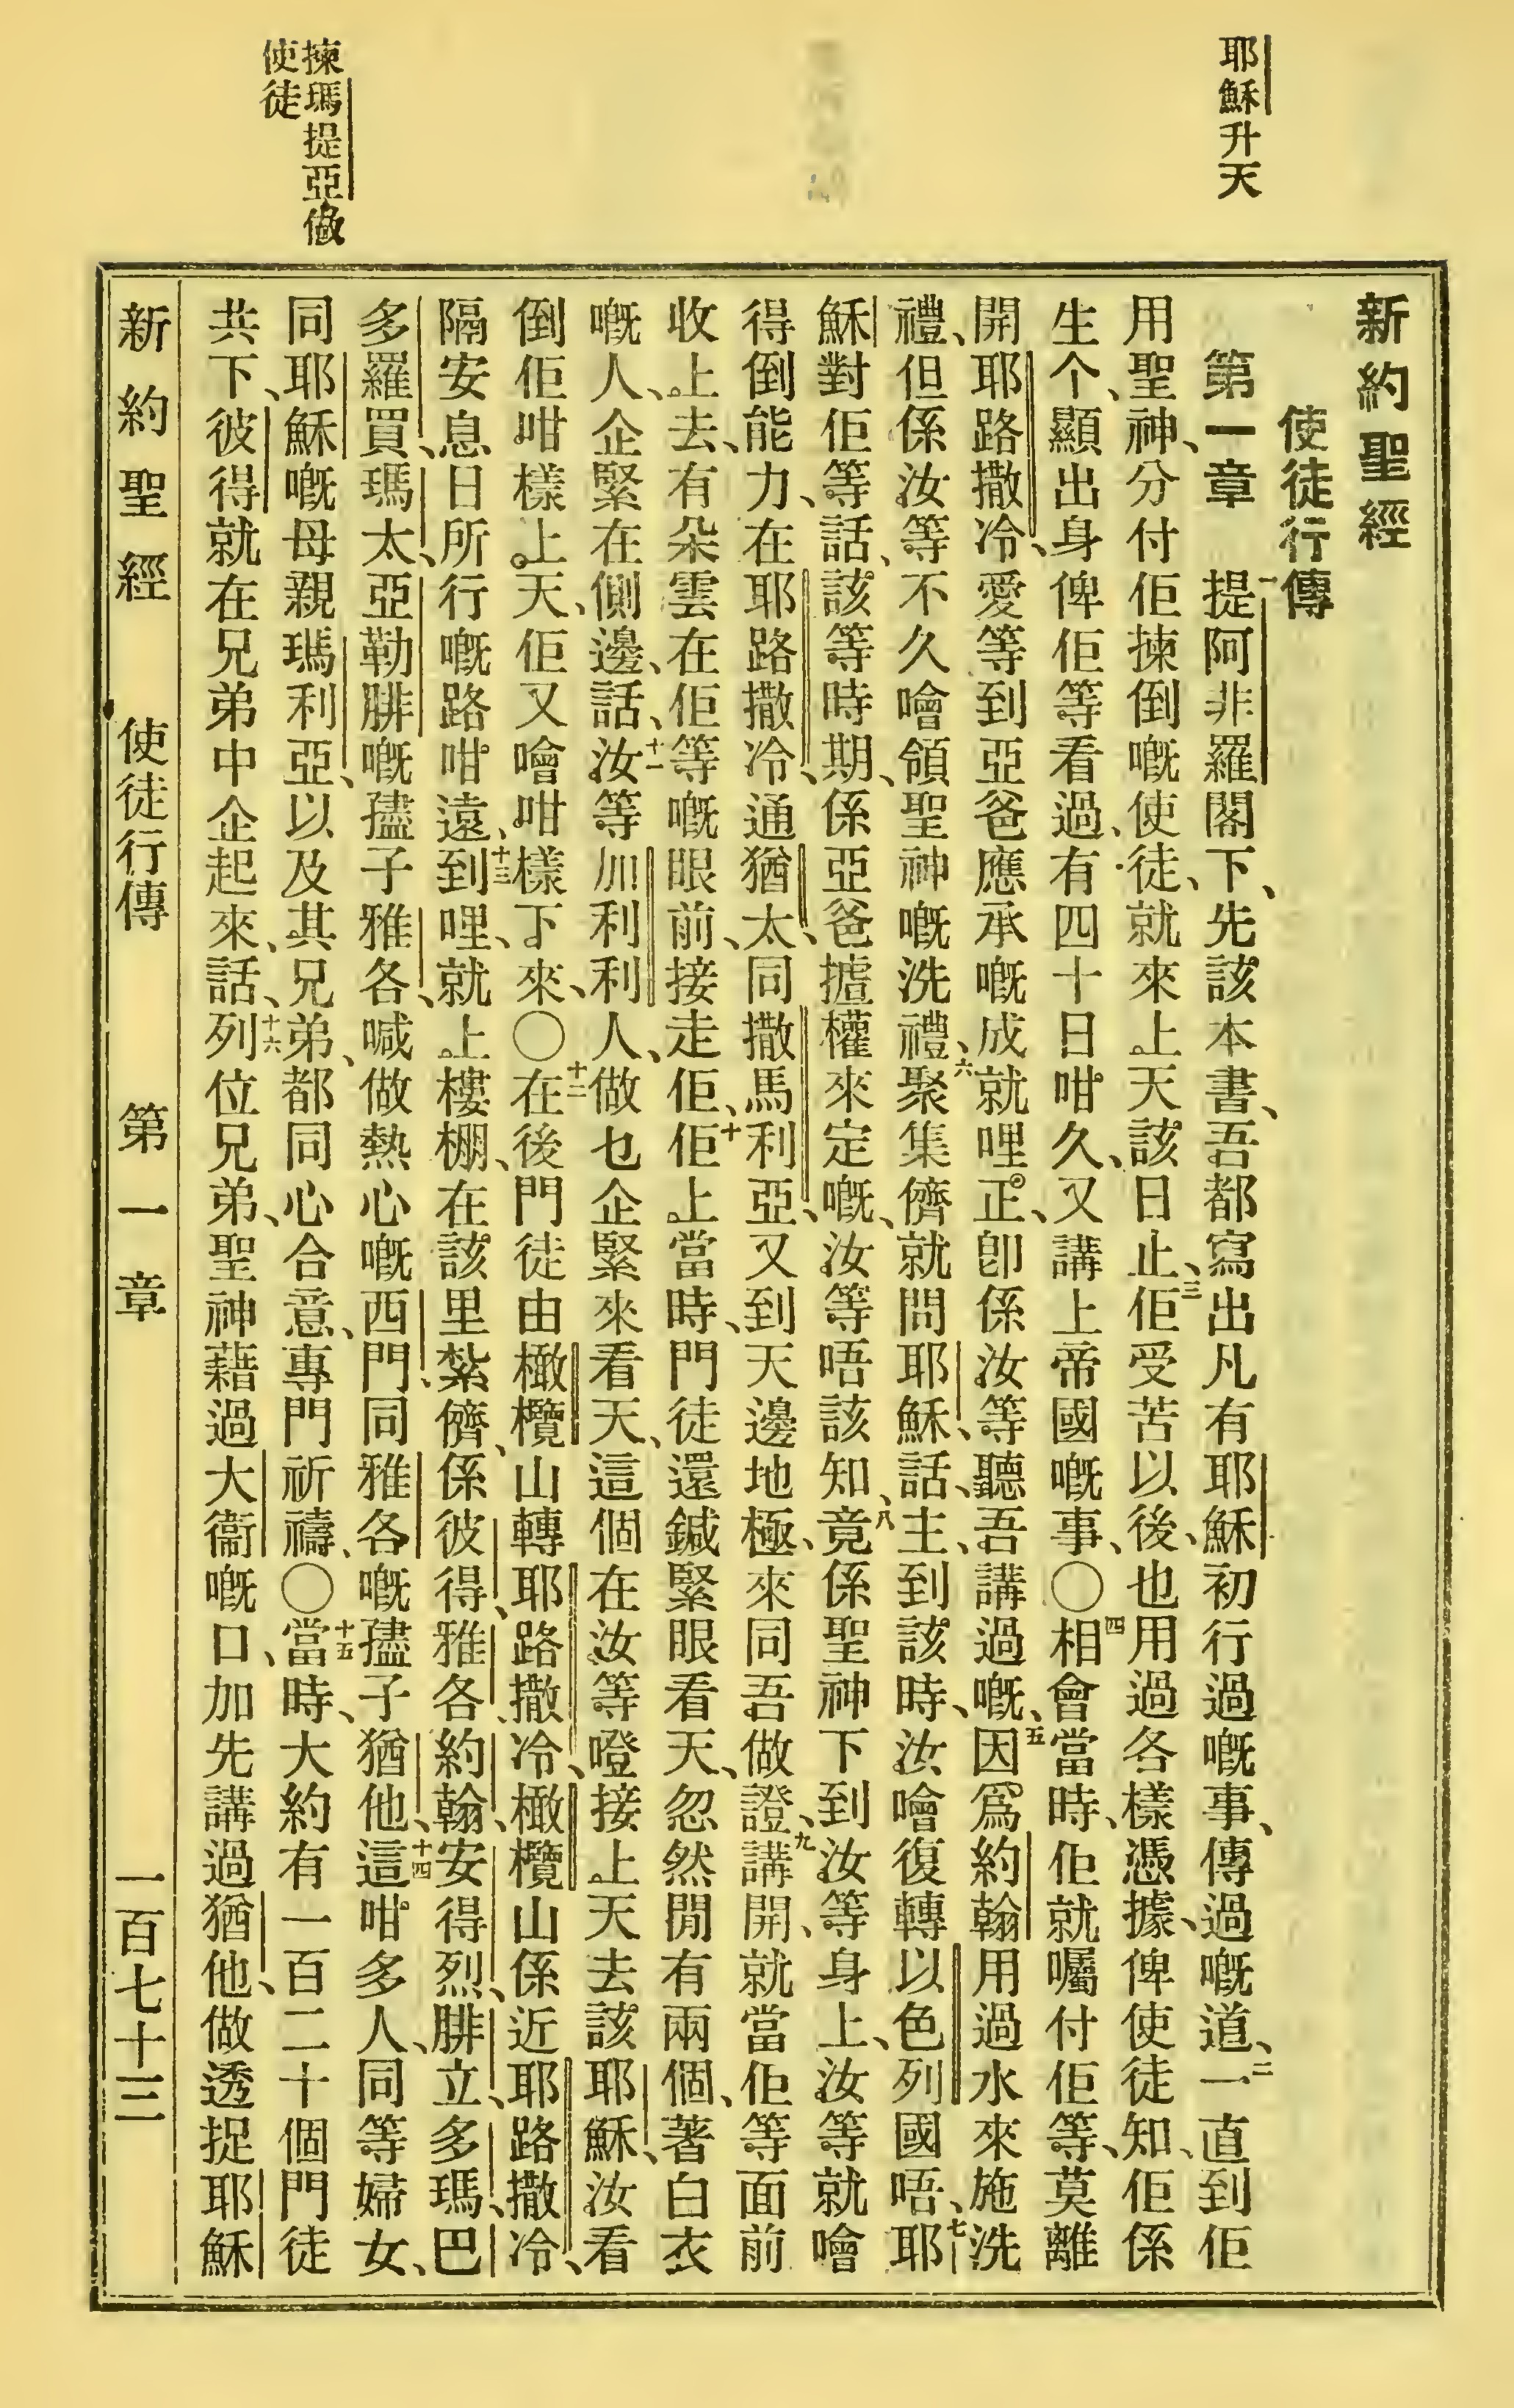 耶穌升天
揀瑪提亞做
使徒
新約聖經
使徒行傳
第一章 一提阿非羅閣下、先該本書、吾都寫出凡有耶穌初行過嘅事、傳過嘅道、二一直到佢
用聖神、分付佢揀倒嘅使徒、就來上天該日止、三佢受苦以後、也用過各樣憑據、俾使徒知、佢係
生个、顯出身俾佢等看過、有四十日咁久、又講上帝國嘅事、〇四相會當時、佢就囑付佢等、莫離
開耶路撒冷、愛等到亞爸應承嘅成就哩正、卽係汝等聽吾講過嘅、五因爲約翰用過水來施洗
禮、但係汝等不久噲領聖神嘅洗禮、六聚集儕就問耶穌、話、主、到該時、汝噲復轉以色列國唔、七耶
穌對佢等話、該等時期、係亞爸揸權來定嘅、汝等唔該知、八竟係聖神下到汝等身上、汝等就噲
得倒能力、在耶路撒冷、通猶太、同撒馬利亞、又到天邊地極、來同吾做證、九講開、就當佢等面前
收上去、有朵雲在佢等嘅眼前、接走佢、十佢上當時、門徒還鍼緊眼看天、忽然閒有兩個、著白衣
嘅人、企緊在側邊、話、十一汝等加利利人、做乜企緊來看天、這個在汝等噔接上天去該耶穌、汝看
倒佢咁樣上天、佢又噲咁樣下來、〇十二在後門徒由橄欖山轉耶路撒冷、橄欖山係近耶路撒冷、
隔安息日所行嘅路咁遠、十三到哩、就上樓棚、在該里紮儕、係彼得、雅各、約翰、安得烈、腓立、多瑪、巴
多羅買、瑪太、亞勒腓嘅孻子雅各、喊做熱心嘅西門、同雅各嘅孻子猶他、十四這咁多人、同等婦女、
同耶穌嘅母親瑪利亞、以及其兄弟、都同心合意、專門祈禱、〇十五當時、大約有一百二十個門徒
共下、彼得就在兄弟中企起來、話、十六列位兄弟、聖神藉過大衞嘅口、加先講過猶他、做透捉耶穌
新約聖經 使徒行傳 第一章 一百七十三